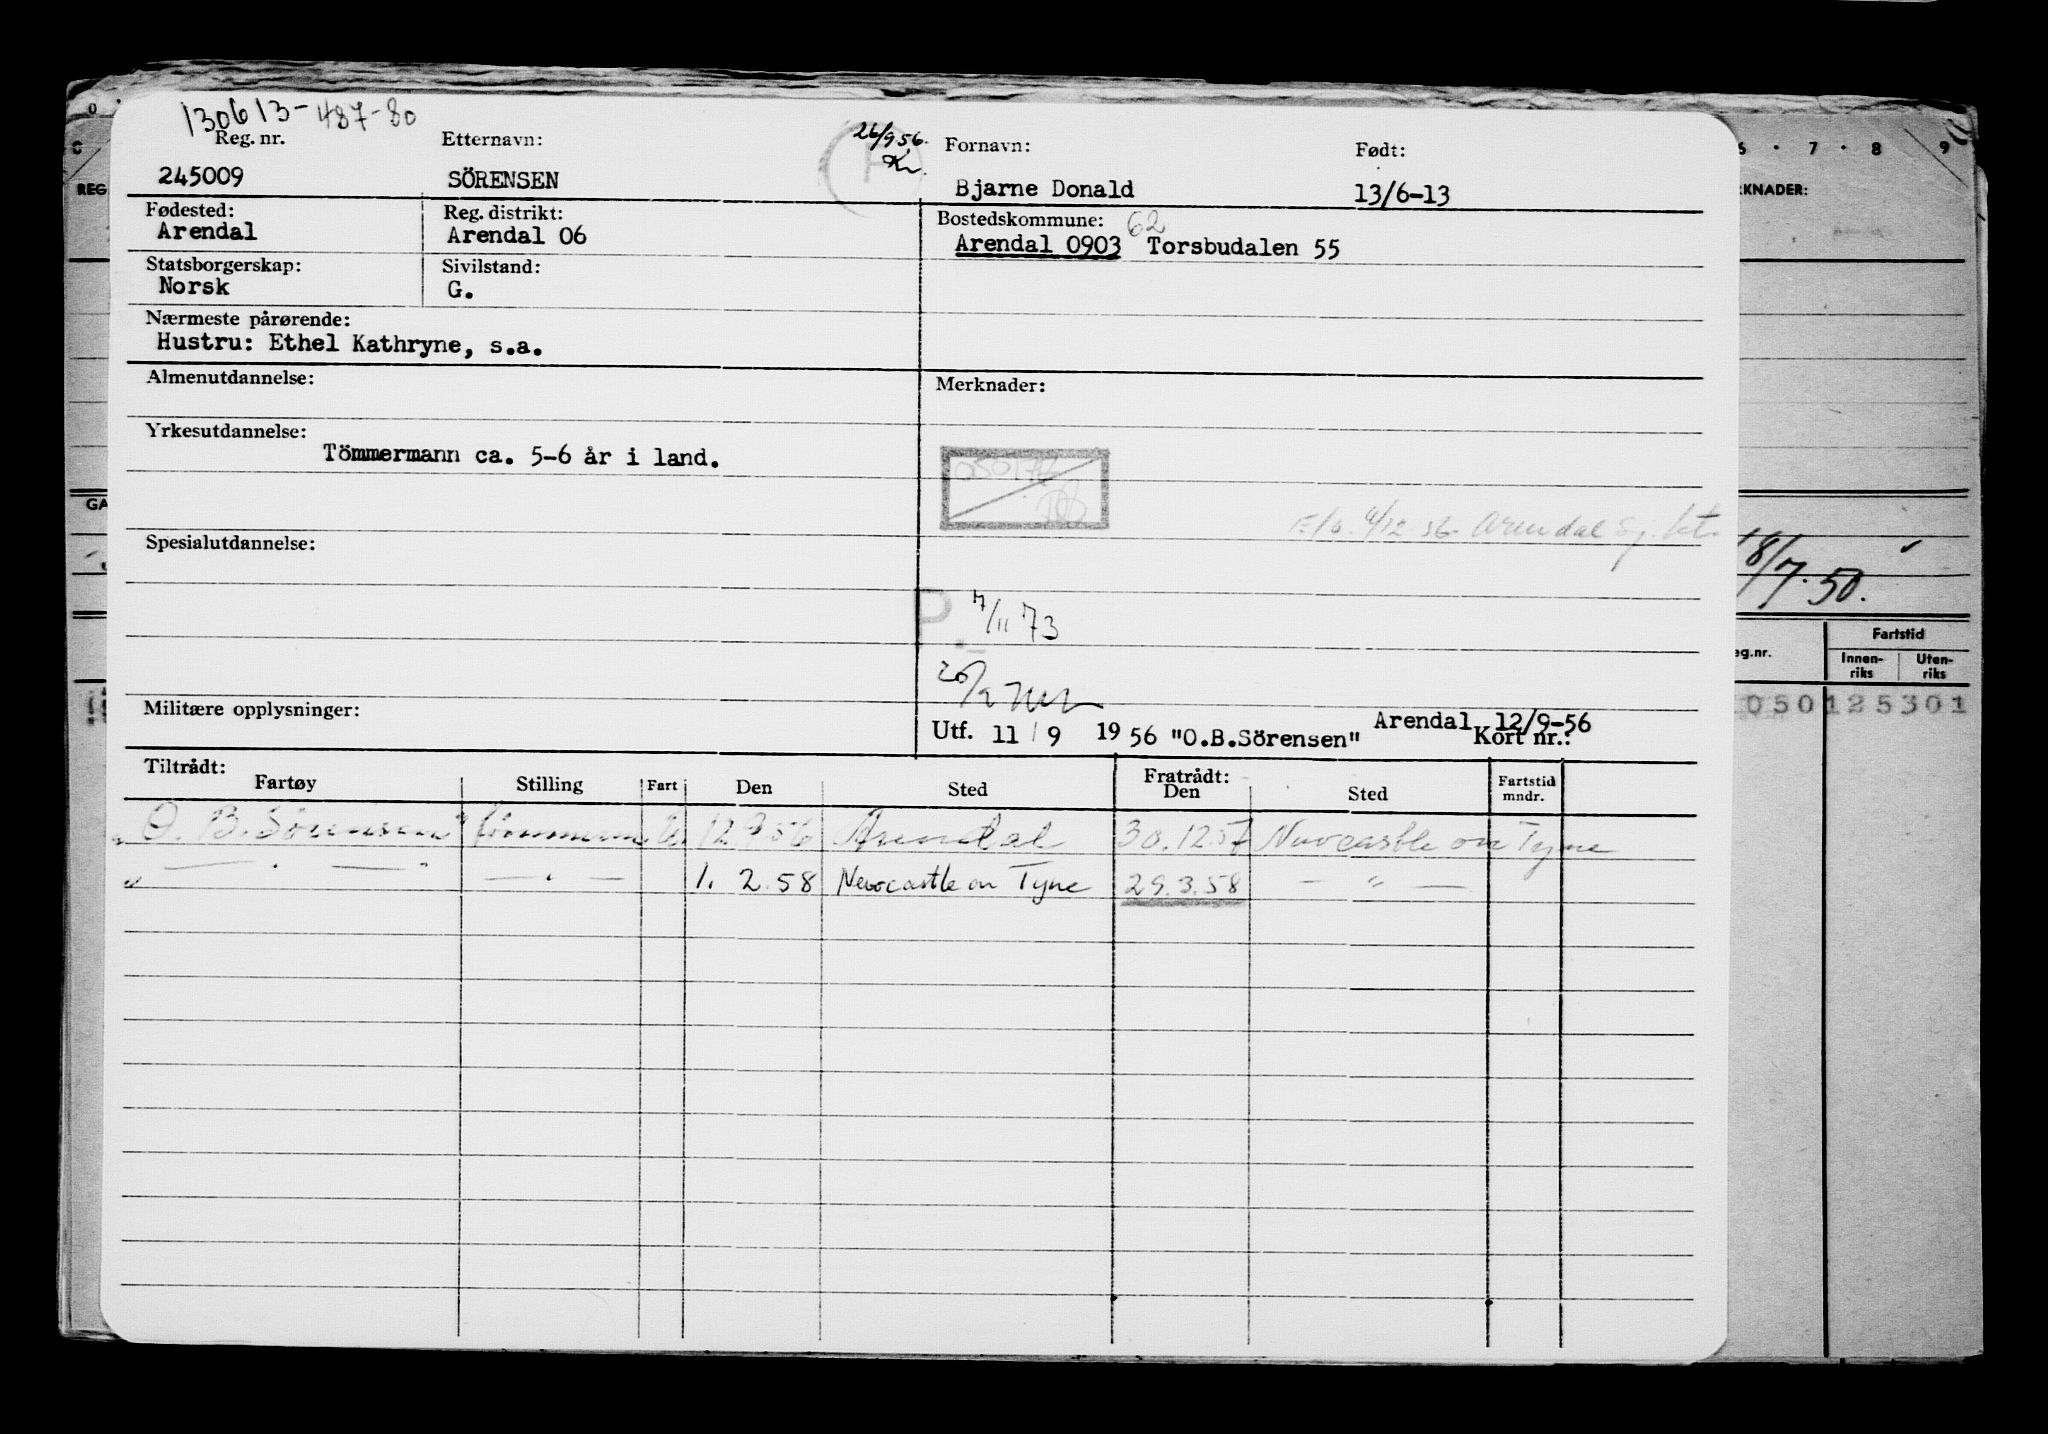 130613-487-80
Reg. nr. Etternavn: 26/9 56. Fornavn: Født:
245009 SÖRENSEN Bjarne Donald 13/6-13
Fødested: Reg. distrikt: Bostedskommune: 62
Arendal Arendal 06 Arendal 0903 Torsbudalen 55
Statsborgerskap: Sivilstand:
Norsk G.
Nærmeste pårørende:
Hustru: Ethel Kathryne, s.a.
Almenutdannelse: Merknader:
Yrkesutdannelse:
Tömmermann ca. 5-6 år i land.
Arendal
Spesialutdannelse:
P. 7/11 73
Militære opplysninger:
Arendal 12/9-56
Utf. 11/9 1956 "O.B.Sörensen" Kort nr.:
Tiltrådt: Fratrådt:
Fartøy Stilling Fart Den Sted Den Sted Fartstid mndr.
"O. B. Sörensen" tömmermann U. 12.9.56 Arendal 30.12.57 Newcastle on Tyne
" — " — " — " — 1. 2.58 Newcastle on Tyne 29.3.58 — " —
REG
GA
6 · 7 · 8 9
RKNADER:
18/7.50.
eg.nr. Fartstid
Innen-riks Uten-riks
050125301